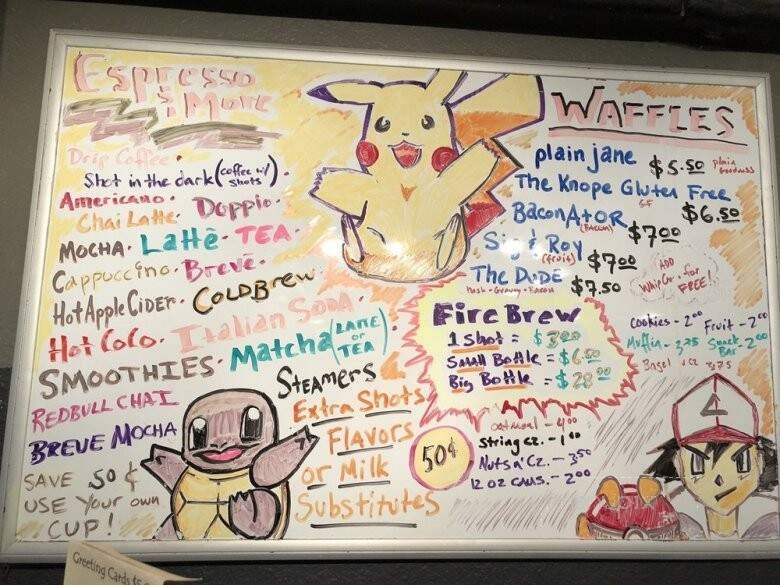 Espresso
& More
Drip Coffee •
Shot in the dark (coffee w/ shots) •
Americano • Doppio •
Chai Latte •
MOCHA • Lattè • TEA •
Cappuccino • Breve •
Hot Apple CIDER • COLD Brew •
Hot CoCo • Italian Soda •
SMOOTHIES • Matcha (LATTE or TEA) •
REDBULL CHAI
STEAMERS
BREVE MOCHA
SAVE 50¢
USE Your own
CUP!
Extra Shots
Flavors
or Milk
Substitutes
50¢
WAFFLES
plain jane $5.50 plain Goodness
The Knope Gluten Free
GF $6.50
BaconAtOR (BACON) $7.00
Sig & Roy (fruit) $7.00
The DUDE $7.50
Hash • Gravy • Bacon
ADD
Whip Cr. for
FREE!
Fire Brew
1 Shot = $3.00
Small Bottle = $6.00
Big Bottle = $28.00
Cookies - 2.00 Fruit - 2.00
Muffin - 3.25 Snack Bar 2.00
Bagel & CZ 3.75
oatmeal - 4.00
string cz. - 1.00
Nuts n' Cz. - 3.50
12 OZ CANS. - 2.00
Greeting Cards